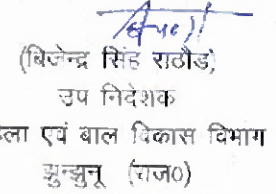 (बिजेन्द्र सिंह राठौड़)
उप निदेशक
ला एवं बाल विकास विभाग
झुन्झुनू (राज०)